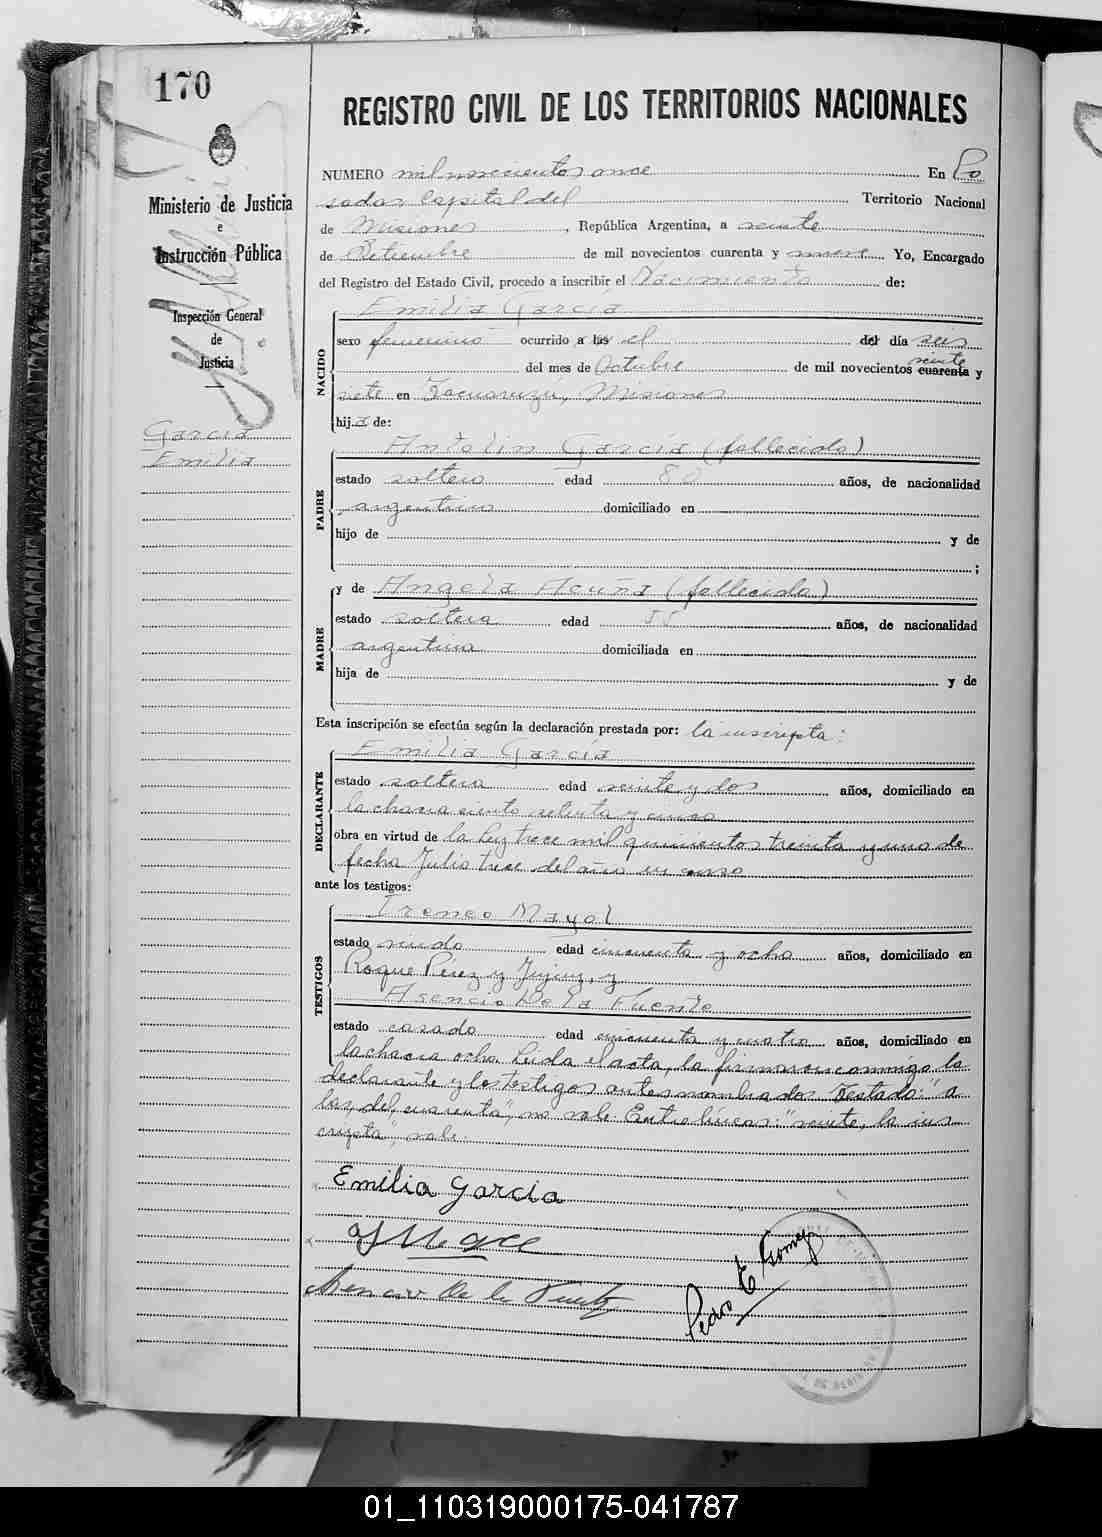 170
REGISTRO CIVIL DE LOS TERRITORIOS NACIONALES
Ministerio de Justicia
e
Instrucción Pública
Inspección General
de
Justicia
García
Emilia
NUMERO mil novecientos once En Po
sadas Capital del Territorio Nacional
de Misiones, República Argentina, a veinte
de Setiembre de mil novecientos cuarenta y nueve Yo, Encargado
del Registro del Estado Civil, procedo a inscribir el Nacimiento de:
NACIDO
Emilia García
sexo femenino ocurrido a las el del día seis
veinte
del mes de Octubre de mil novecientos cuarenta y
siete en Misiones
hija de:
PADRE
Antolin García (fallecido)
estado soltero edad 80 años, de nacionalidad
argentino domiciliado en
hijo de y de
;
MADRE
y de Angela Acuña (fallecida)
estado soltera edad 55 años, de nacionalidad
argentina domiciliada en
hija de y de
Esta inscripción se efectúa según la declaración prestada por: la inscripta:
DECLARANTE
Emilia García
estado soltera edad veinte y dos años, domiciliado en
la chacra ciento setenta y cinco
obra en virtud de la Ley trece mil quinientos treinta y uno de
fecha Julio trece del año en curso
ante los testigos:
TESTIGOS
Ireneo Mayol
estado viudo edad cincuenta y ocho años, domiciliado en
Roque Pérez y Jujuy, y
Asencio De la Fuente
estado casado edad cincuenta y cuatro años, domiciliado en
la chacra ocho. Leida el acta, la firmaron conmigo la
declarante y los testigos antes nombrados. Testado: "a
las, del, cuarenta", no vale. Entre líneas: "veinte, la ins
cripta", vale.
Emilia Garcia
Asencio De la Fuente
Pedro E Gomez
01_110319000175-041787